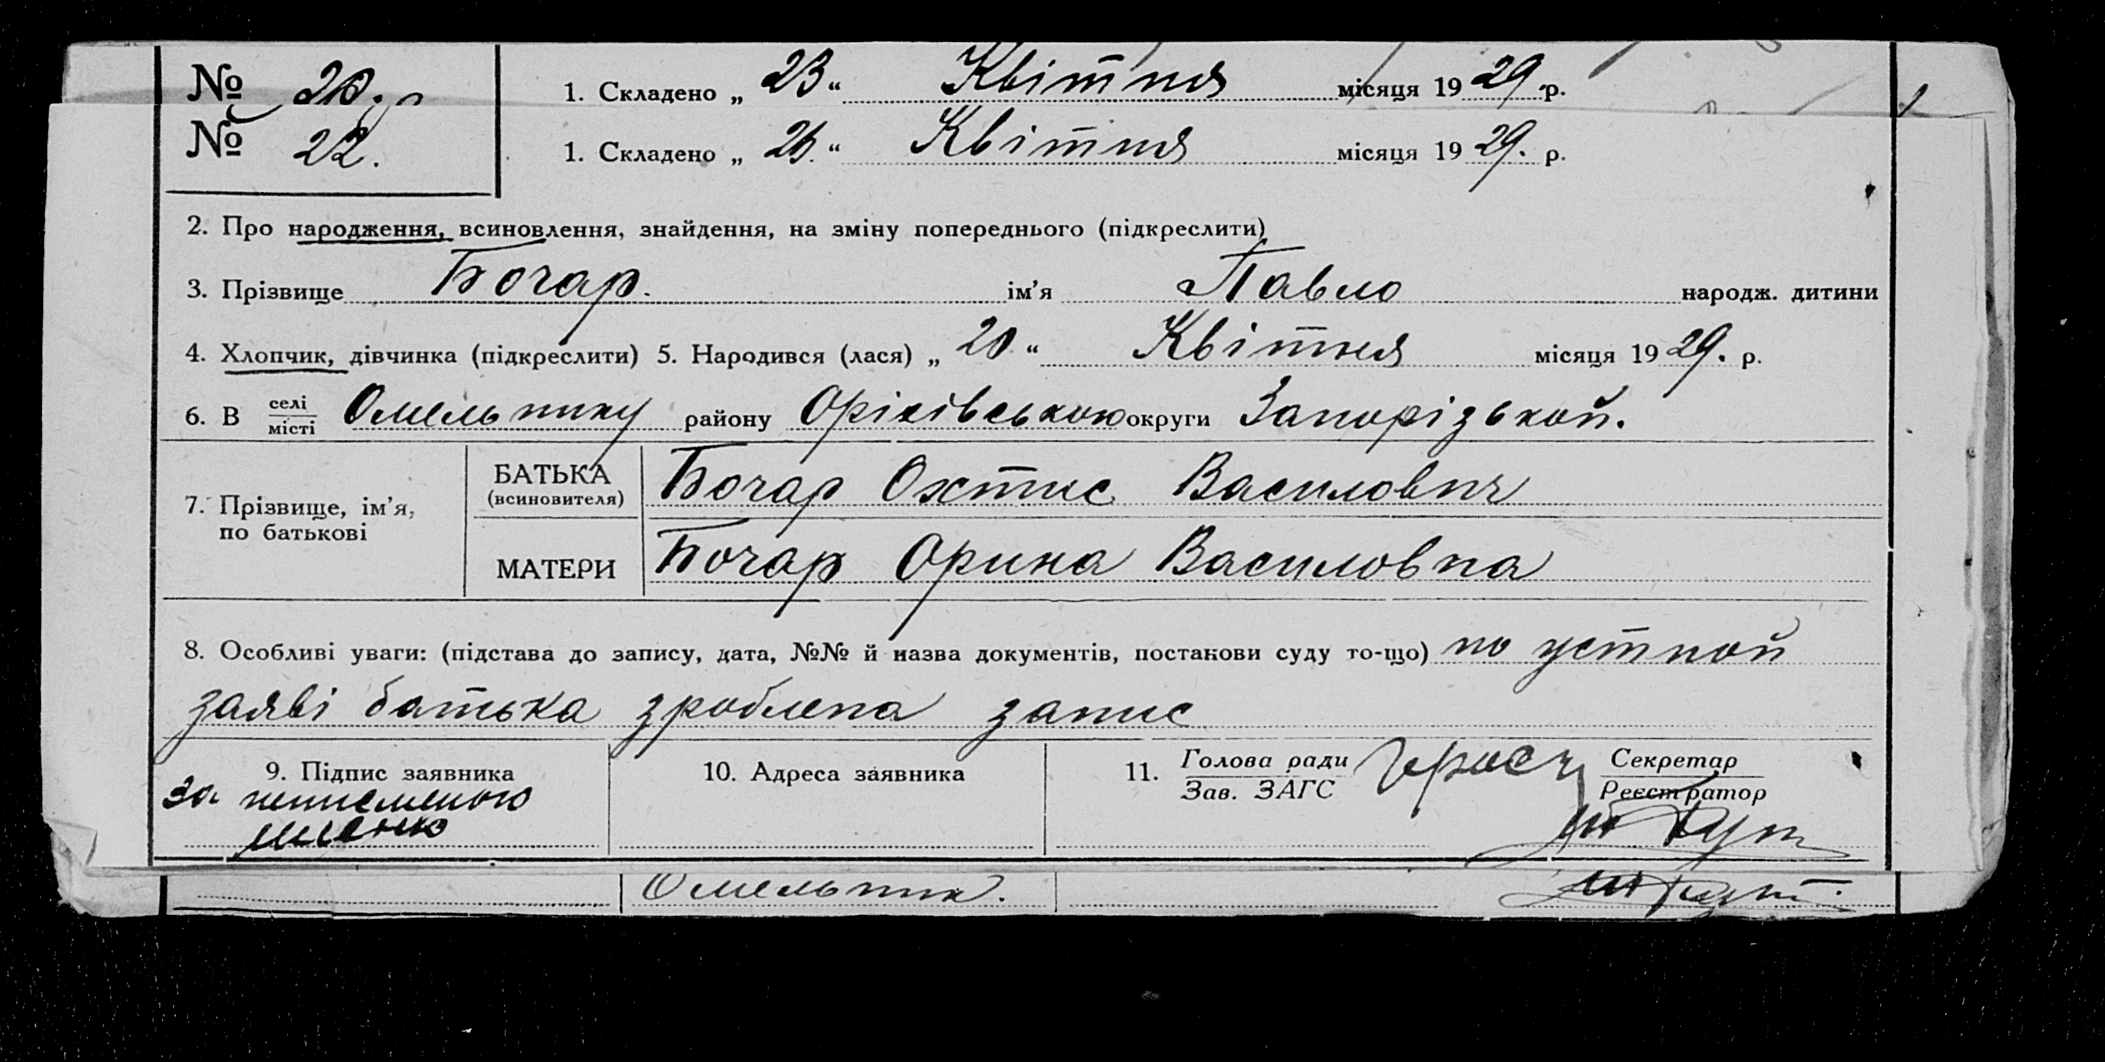 № 20. 1. Складено „ 23 “ Квітня місяця 19 29 р.
№ 22. 1. Складено „ 23. “ Квітня місяця 19 29. р.
2. Про народження, всиновлення, знайдення, на зміну попереднього (підкреслити)
3. Прізвище Бочар. ім’я Павло народж. дитини
4. Хлопчик, дівчинка (підкреслити) 5. Народився (лася) „ 20 “ Квітня місяця 19 29. р.
6. В селі місті Омельнику району Оріхівською округи Запорізькой.
7. Прізвище, ім’я, по батькові
БАТЬКА (всиновителя) Бочар Охтис Василович
МАТЕРИ Бочар Орина Василовна
8. Особливі уваги: (підстава до запису, дата, №№ й назва документів, постанови суду то-що) по устной
заяві батька зроблена запис
9. Підпис заявника
За неписменого
10. Адреса заявника
11. Голова ради Секретар
Зав. ЗАГС Реєстратор
Омельник.